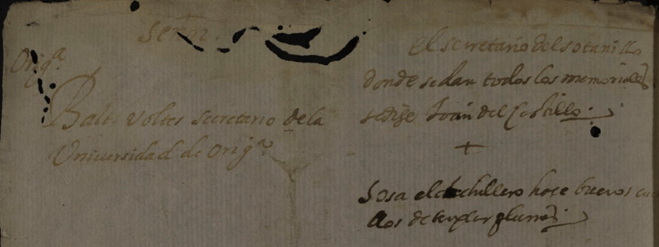 Señor.
Orig.ª
Balt. Voltes secretario de la
Universidad de Orig.ª
El secretario del sotanillo
donde se dan todos los memoriales
se dize Joan del Castillo.
+
Sosa el hace buenos